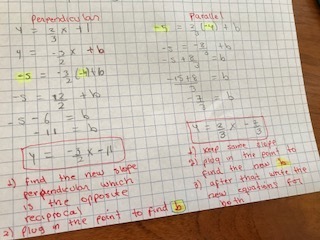 Perpendicular
y = 2/3 x + 1
y = -3/2 x + b
-5 = -3/2 (-4) + b
-5 = 12/2 + b
-5 - 6 = b
-11 = b
y = -3/2 x - 11
1) find the new slope
perpendicular which
is the opposite
reciprocal
2) plug in the point to find b
Parallel
-5 = 2/3 (-4) + b
-5 = -8/3 + b
-5 + 8/3 = b
-15+8/3 = b
-7/3 = b
y = 2/3 x - 7/3
1) keep same slope
2) plug in the point to
find the new b
3) after that write the
new equations for
both